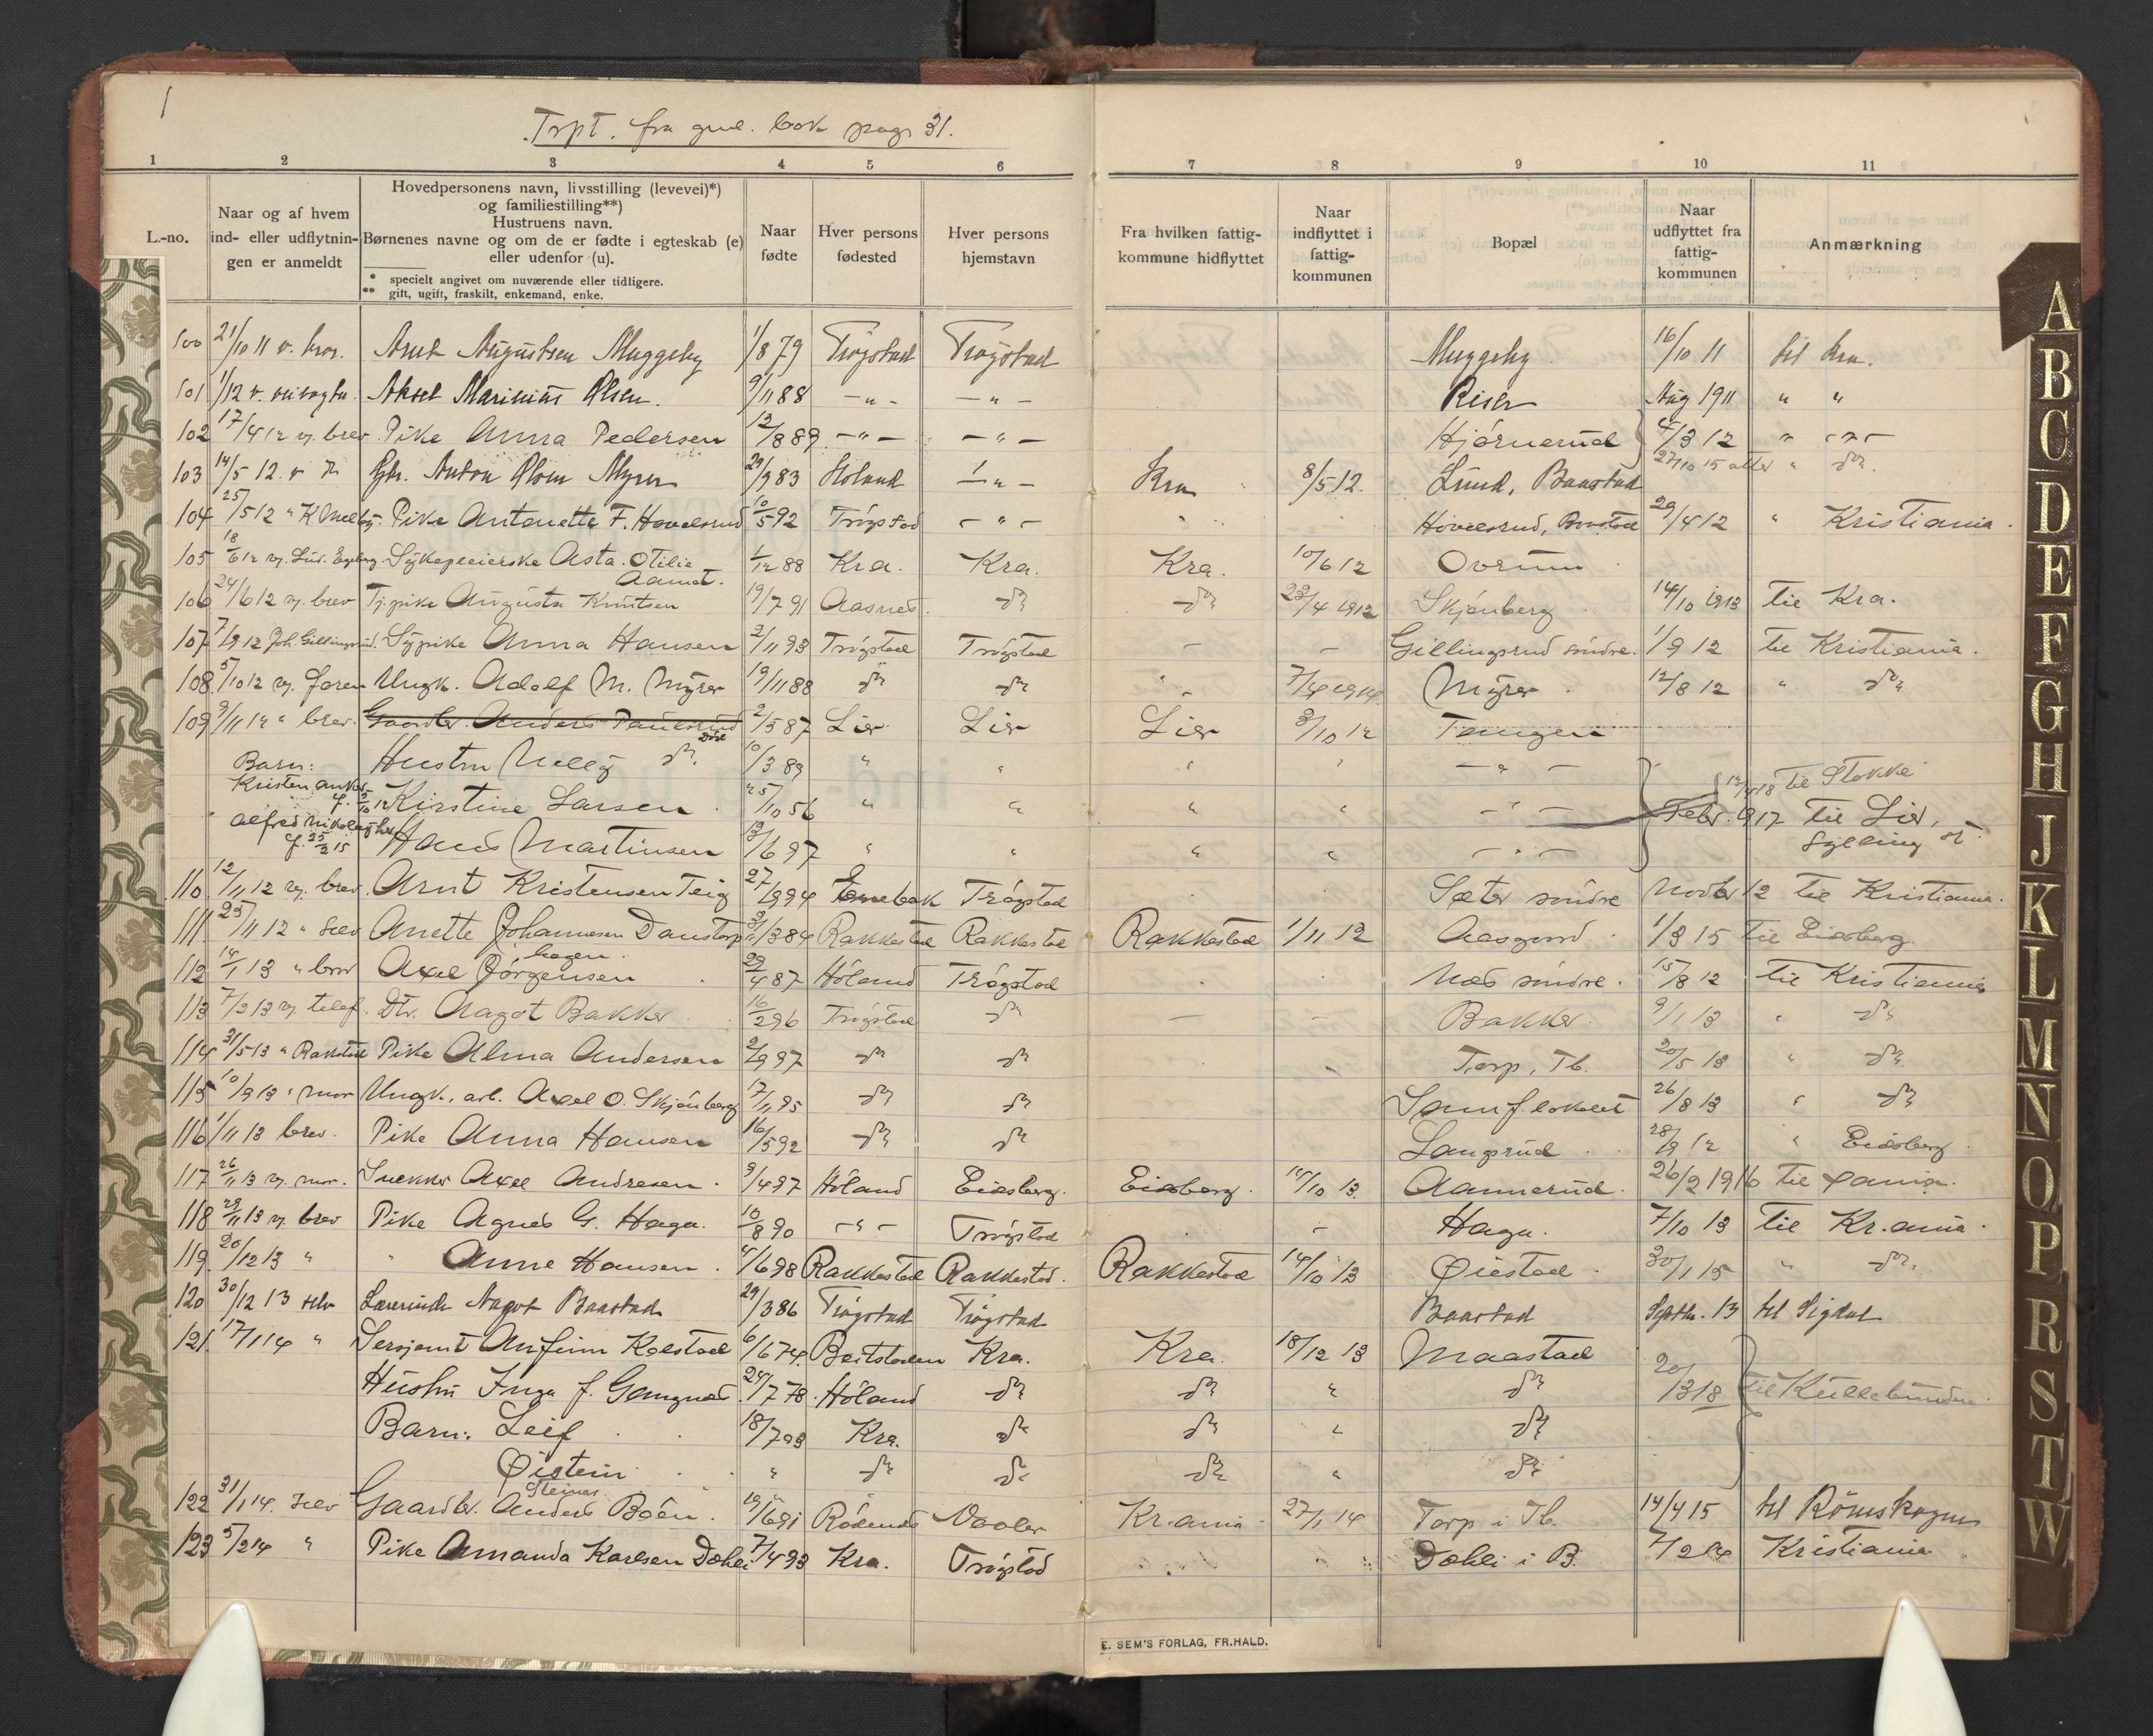 1
Trpt. fra gml. bok pag. 31.
1 2 3 4 5 6 7 8 9 10 11
L.-no.
Naar og af hvem ind- eller udflytnin-gen er anmeldt
Hovedpersonens navn, livsstilling (levevei)*)
og familiestilling**)
Hustruens navn.
Børnenes navne og om de er fødte i egteskab (e)
eller udenfor (u).
* specielt angivet om nuværende eller tidligere.
** gift, ugift, fraskilt, enkemand, enke.
Naar fødte
Hver persons fødested
Hver persons hjemstavn
Fra hvilken fattig-kommune hidflyttet
Naar indflyttet i fattig-kommunen
Bopæl
Naar udflyttet fra fattig-kommunen
Anmærkning
100 21/10 11 v. Arnt Augustsen Muggeby 1/8 79 Trögstad Trögstad Muggeby 16/10 11 til Kra.
101 1/12 v. Aksel Marinius Olsen. 9/11 88 -"- -"- Riser Aug 1911 " "
102 17/4 12 v. brev Pike Anna Pedersen 12/8 89 -"- -"- Hjörnerud 4/3 12 " -"-
103 14/5 12. v Anton Olsen Myrer 29/9 83 Höland -"- Kra 8/5 12. Lund, Baastad 27/10 15 atter " do.
104 25/5 12 " Pike Antonette F. Hovelsrud 10/5 92 Trögstad -"- Hovelsrud, Baastad 29/4 12 " Kristiania.
105 18/6 12 v. Sykepleierske Asta Otilie Aamot. 1/12 88 Kra. Kra. Kra. 10/6 12 Overum
106 24/6 12 v. brev Tj.pike Augusta Knutsen 19/7 91 Aasnes. do do 23/4 1912 Skjönberg 14/10 1913 til Kra.
107 7/9 12 Joh. Gillingsrud. Sypike Anna Hansen 2/11 93 Trögstad Trögstad - - Gillingsrud söndre. 1/9 12 til Kristiania.
108 5/10 12 v. Ungk. Adolf M. Myrer 19/11 88 do do " 7/4 1914 Myrer 12/8 12 " do
109 9/11 12 " brev. Gaardbr. Anders Paulsrud Död 2/5 87 Lier Lier Lier 3/10 12 Tangen
Barn: Hustru Nelly do. 10/3 89 " " " " -"-
Kristen Anker f. 2/10 12 Kirstine Larsen 25/10 56 " " " " -"- 12/4 18 til Stokke
Febr. 1917 til Lier, Sylling st.
Alfred Nikolay f. 25/2 15 Hans Martinsen 13/6 97 " " " " -"-
110 12/11 12 v. brev. Arnt Kristensen Teig 27/9 94 Enebak Trögstad Sæter söndre Novbr 12 til Kristiania.
111 25/11 12 " selv Anette Johannesen Danstorp 31/3 84 Rakkestad Rakkestad Rakkestad 1/11 12 Aasgaard 1/3 15 til Eidsberg.
hagen.
112 14/1 13 " brev Axel Jörgensen 29/4 87 Höland Trögstad Næs söndre. 15/8 12 til Kristiania
113 7/2 13 v. telef. Dtr. Aagot Bakker 16/2 96 Trögstad do - - Bakker 9/1 13 " do
114 31/5 13 " Pike Alma Andersen 2/9 97 do do Torp, Tb. 20/5 13 " do
115 10/9 13 " mor Ungk. arb. Axel O. Skjönberg 17/11 95 do do Samf.lokalet 26/8 13 " do
116 1/11 13 brev. Pike Anna Hansen 16/5 92 do do Langsrud 28/9 12 " Eidsberg
117 26/11 13 v. mor. Snekker Axel Andresen. 9/4 97 Höland Eidsberg. Eidsberg. 15/10 13 Aannerud. 26/2 1916 til
118 29/11 13 v. brev Pike Agnes G. Haga. 10/8 90 -"- Trögstad - Haga. 7/10 13 til Kr.ania.
119 20/12 13 " " Anne Hansen. 4/6 98 Rakkestad Rakkestad. Rakkestad 14/10 13 Øiestad 30/1 15 " do.
120 30/12 13 selv Lærerinde Aagot Baastad 29/3 86 Trögstad Trögstad Baastad Septbr. 13 til Sigdal
121 17/1 14 " Sersjant Anfinn Kolstad 6/6 74. Beitstaden Kra. Kra. 18/12 13 Maastad
Hustru Inga f. Gangnæs. 24/7 78. Höland do do " do 20/1318 til Kullebunden
Barn: Leif 18/7 03 Kra. do do " do
Øistein " do do do " do
Steinar
122 31/1 14. selv Gaardbr. Anders Boën. 19/6 91 Rödenes Vaaler Kr.ania 27/1 14 Torp i Tb. 14/4 15 til Römskogen
123 5/2 14 " Pike Amanda Karlsen Dæhli 7/4 93 Kra. Trögstad Dæhli i B. 7/2 14 Kristiania
E. SEM'S FORLAG, FR.HALD.
A
B
C
D
E
F
G
H
J
K
L
M
N
O
P
R
S
T
W